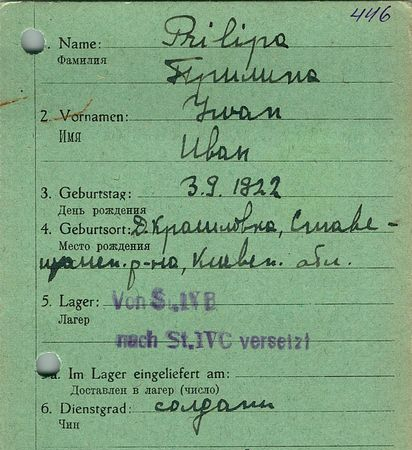 446
1. Name: Prilipa
Фамилия Прилипа
2. Vornamen: Iwan
Имя Иван
3. Geburtstag: 3.9.1922
День рождения
4. Geburtsort: Д. Крашловка, Стави-
Место рождения
щанск. р-на, Киевск. обл.
5. Lager: Von St.IVB
Лагер
nach St.IVC versetzt
a. Im Lager eingeliefert am:
Доставлен в лагер (число)
6. Dienstgrad: солдат
Чин